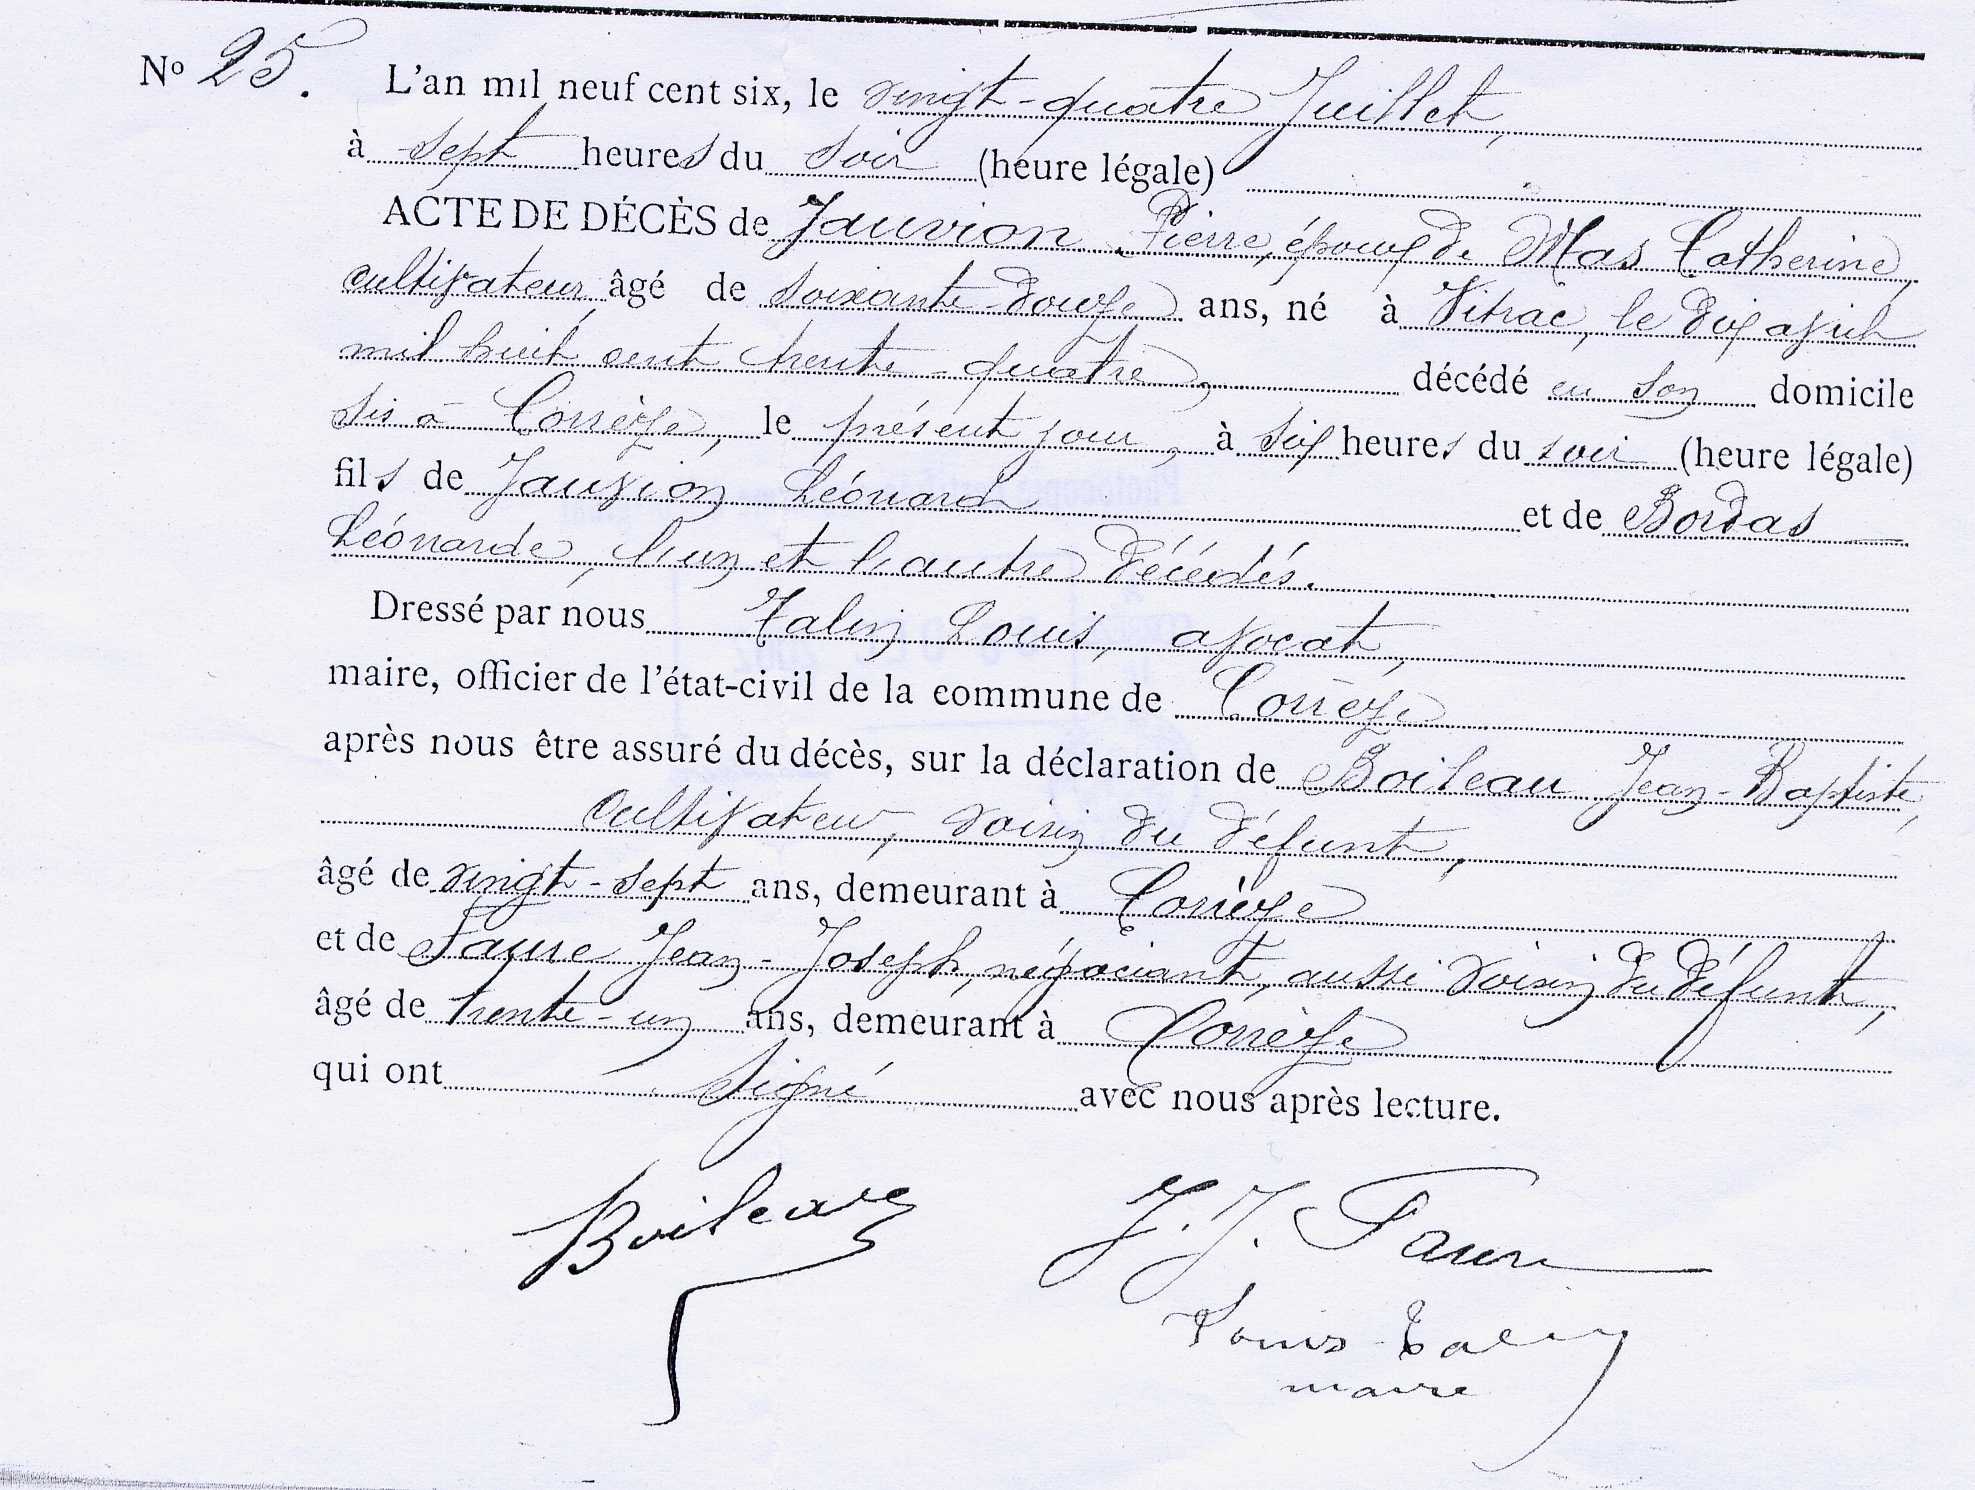 No 25. L'an mil neuf cent six, le vingt-quatre Juillet,
à sept heures du soir (heure légale)
ACTE DE DÉCÈS de Jauvion Pierre, époux de Mas Catherine,
cultivateur, âgé de soixante-douze ans, né à Vitrac, le dix avril
mil huit cent trente-quatre, décédé en son domicile
sis à Corrèze, le présent jour, à six heures du soir (heure légale)
fils de Jauvion Léonard et de Bordas
Léonarde, l'un et l'autre décédés.
Dressé par nous Talin Louis, avocat,
maire, officier de l'état-civil de la commune de Corrèze
après nous être assuré du décès, sur la déclaration de Boileau Jean-Baptiste,
cultivateur, voisin du défunt,
âgé de vingt-sept ans, demeurant à Corrèze
et de Faure Jean-Joseph, négociant, aussi voisin du défunt,
âgé de trente-un ans, demeurant à Corrèze
qui ont signé avec nous après lecture.
Boileau J. J. Faure
Louis Talin
maire